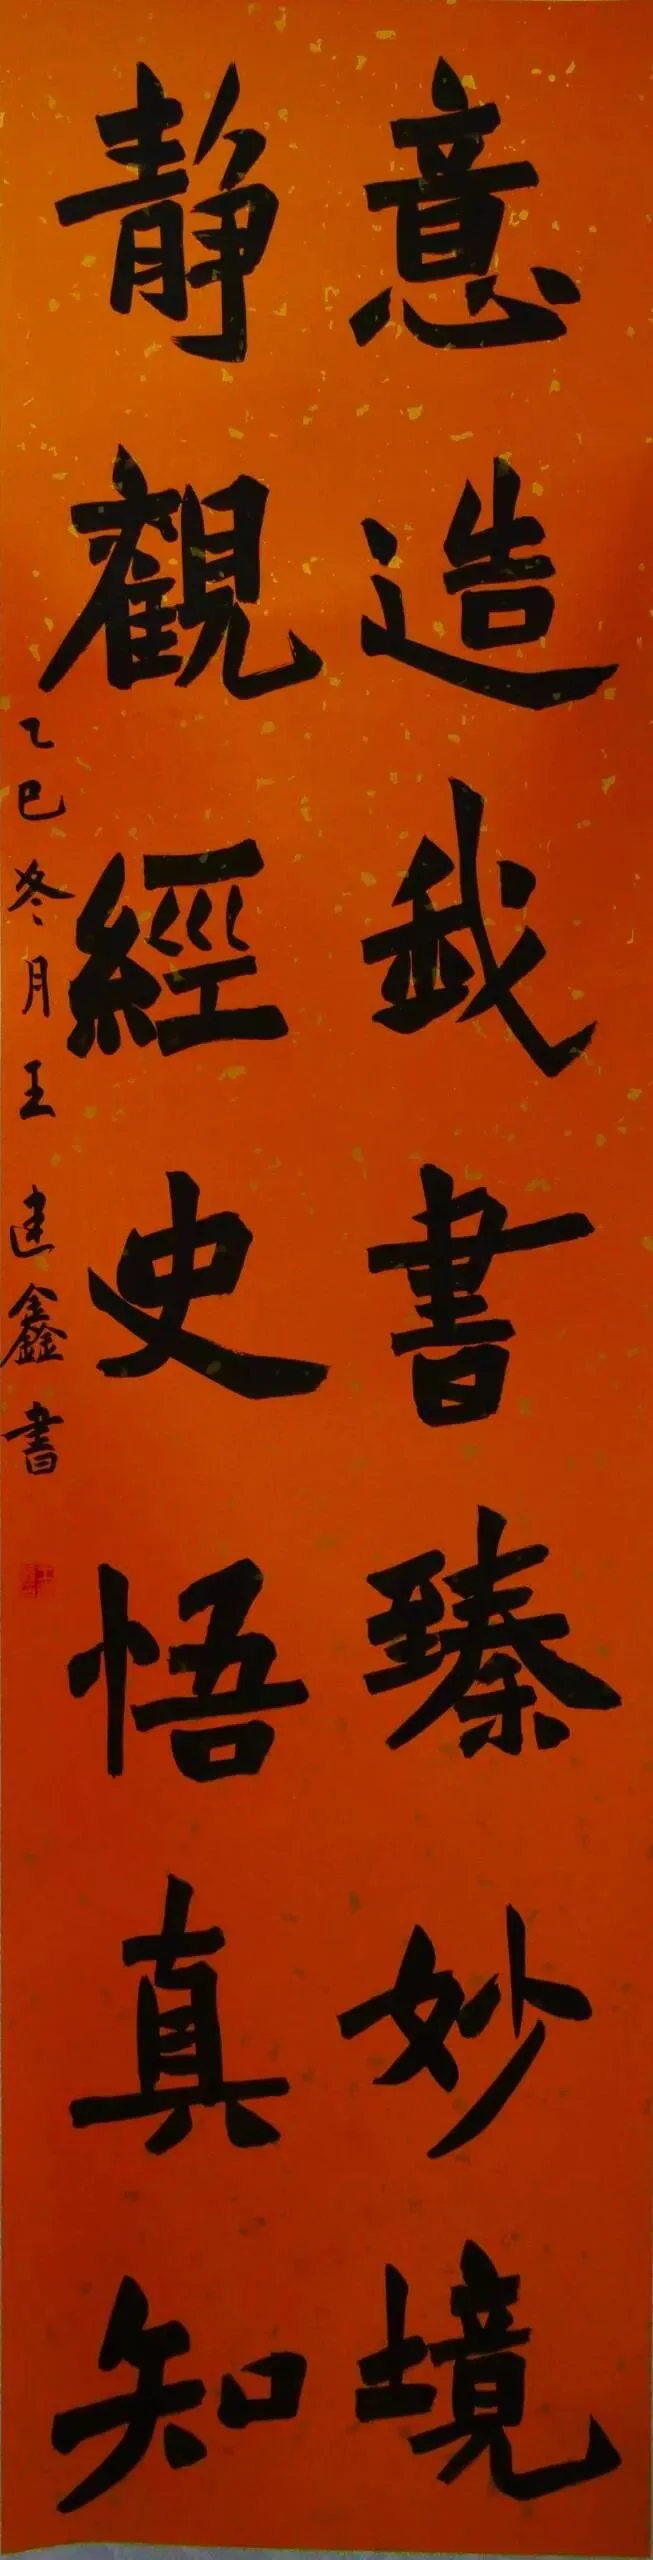 意造我書臻妙境
靜觀經史悟真知
乙巳冬月王建鑫書